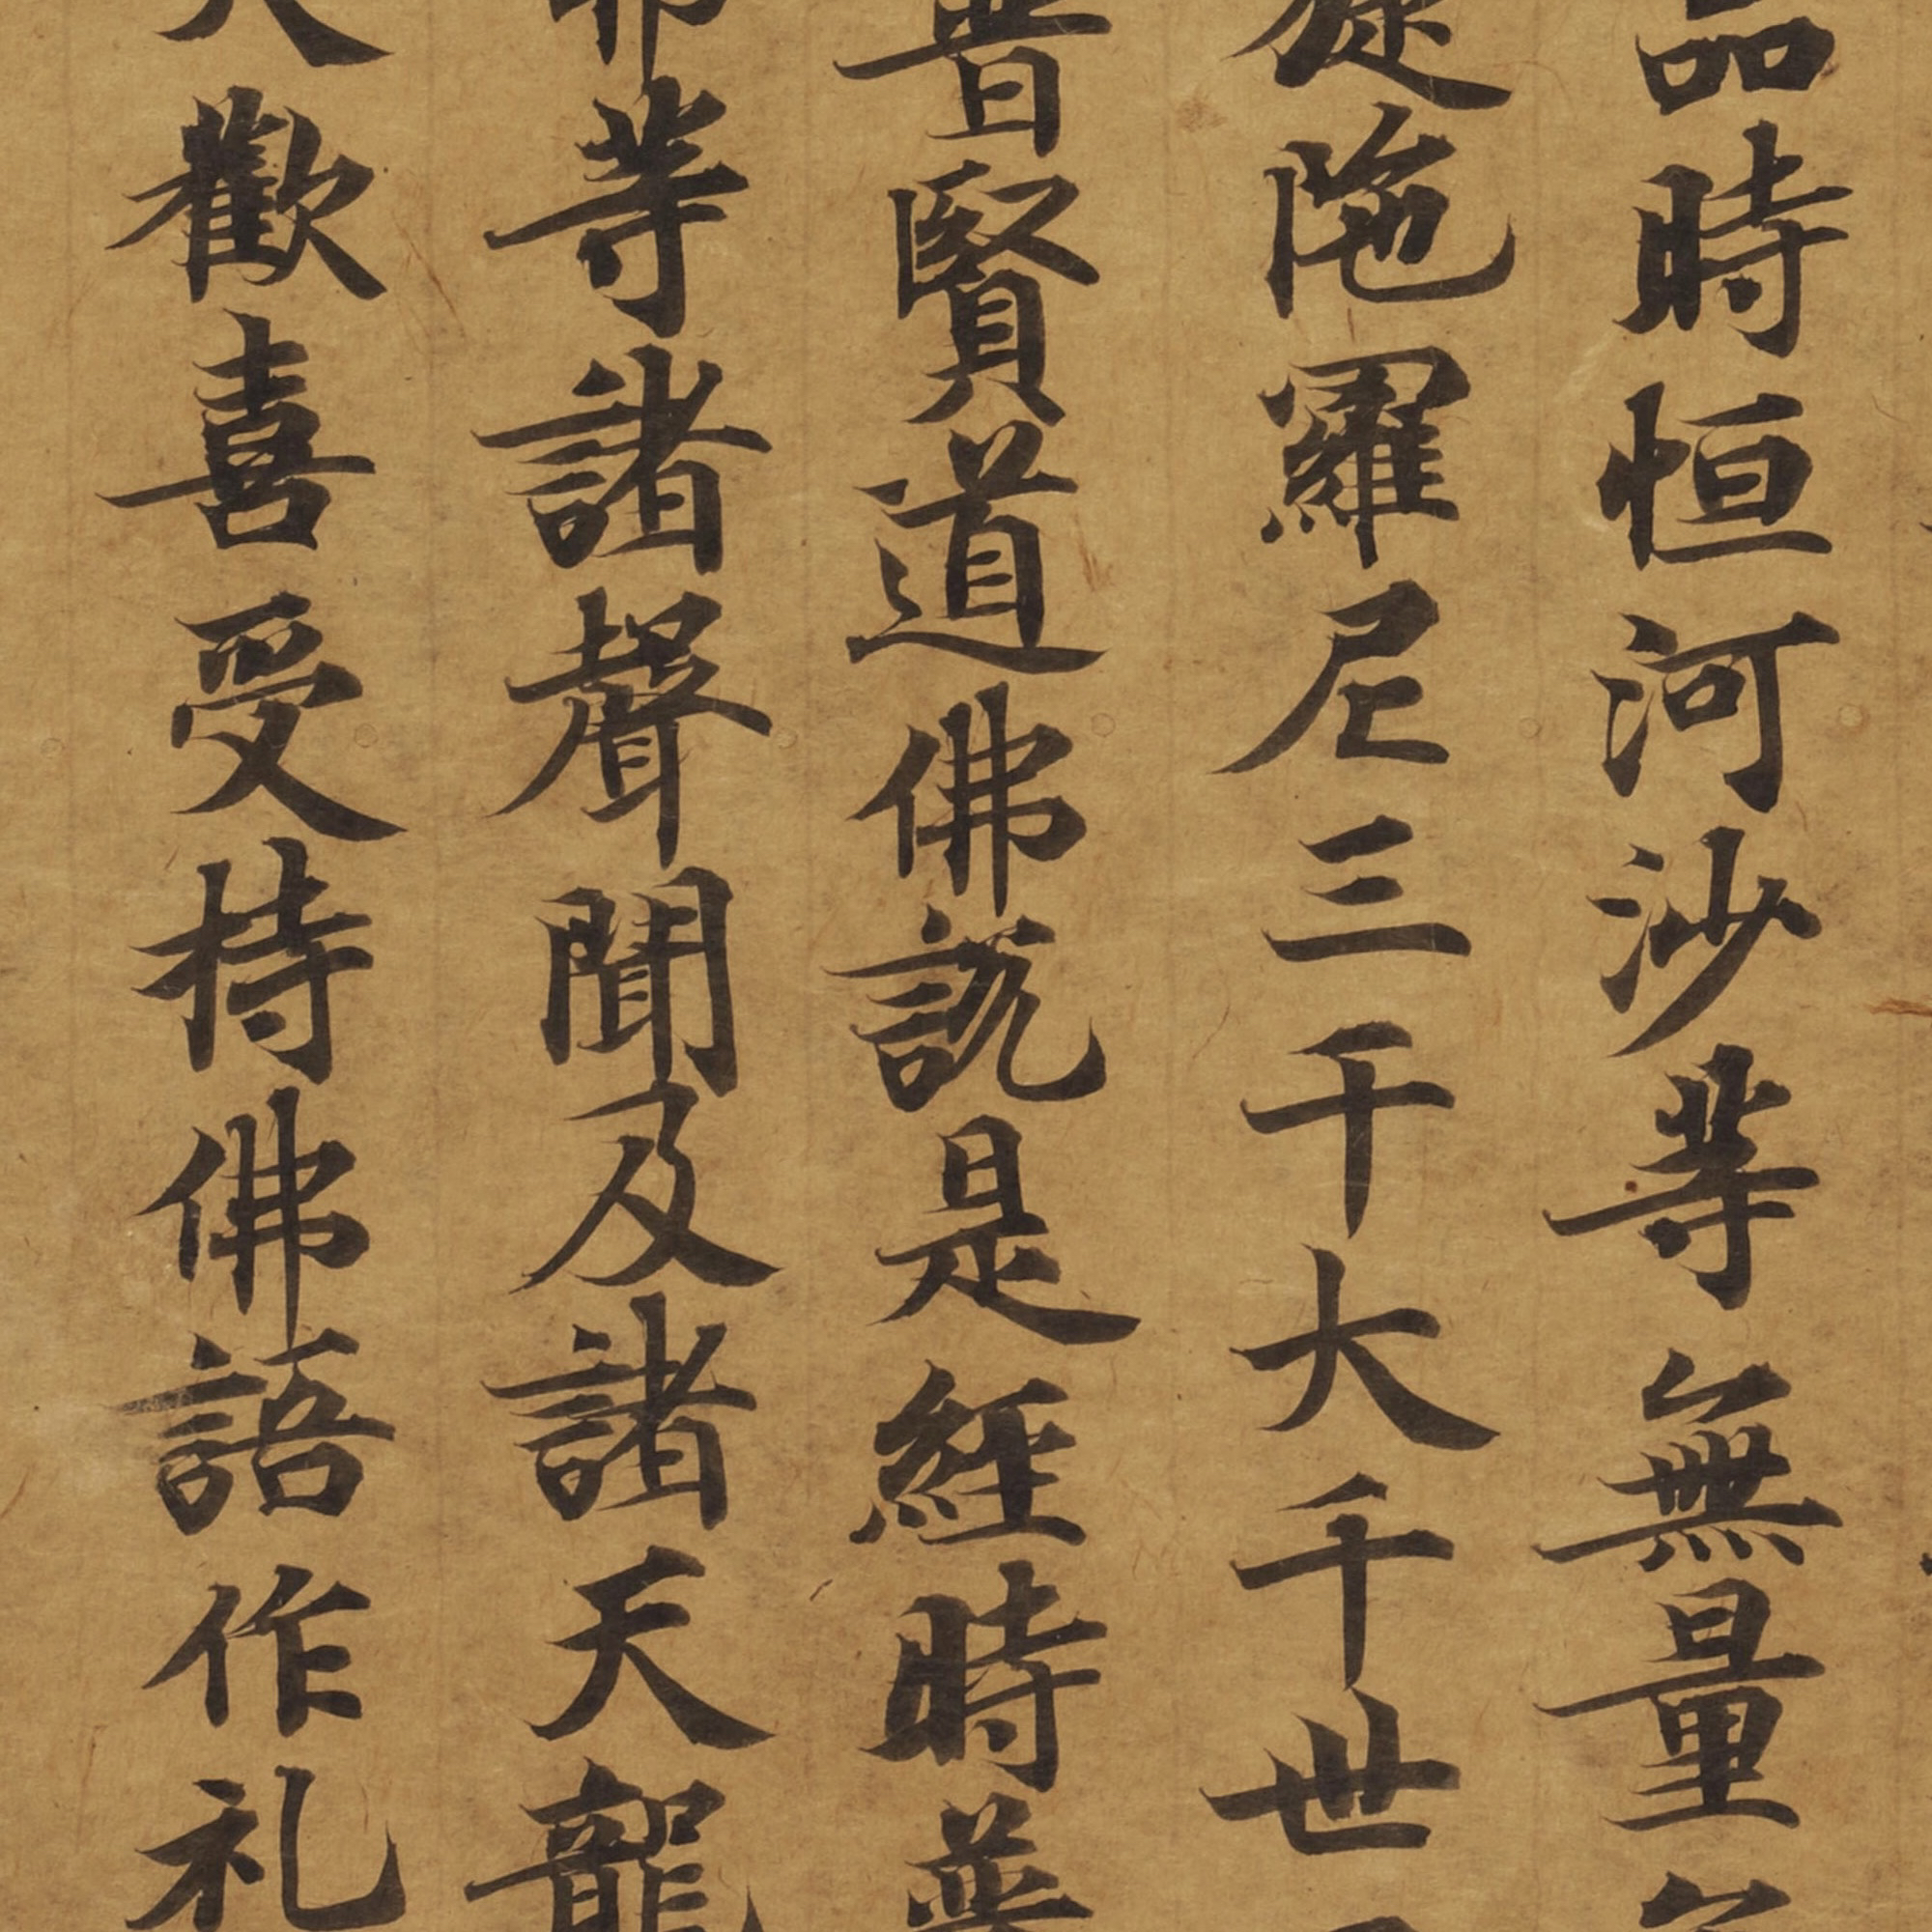 品時恒河沙等無量無
旋陁羅尼三千大千世
普賢道佛說是經時普
弗等諸聲聞及諸天龍
大歡喜受持佛語作礼